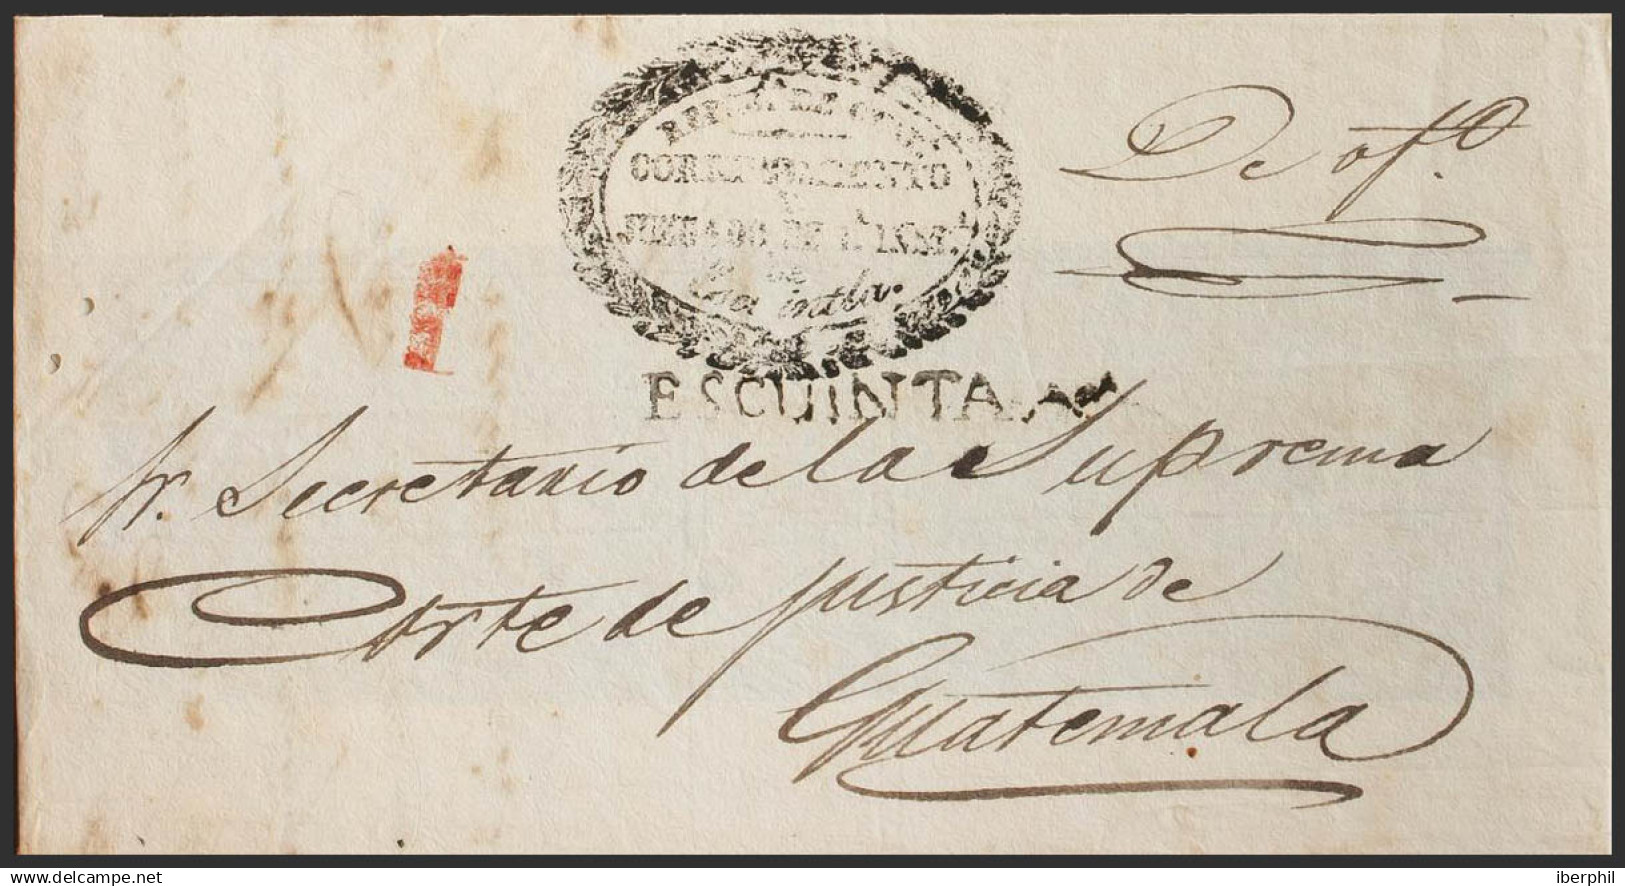 De ofº.
CORREGIMIENTO
Y
JUZGADO DE 1ª INSTª
DE
ESCUINTLA
Sr. Secretario de la Suprema
Corte de justicia de
Guatemala
delcampe.net
iberphil